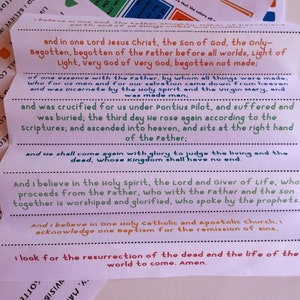 I believe in one God,
and in one Lord Jesus Christ, the Son of God, the Only-
Begotten, begotten of the Father before all worlds, Light of
Light, Very God of Very God, begotten not made;
of one essence with the Father, by whom all things were made;
who for us men and for our salvation came down from heaven,
and was incarnate by the Holy Spirit and the Virgin Mary, and
was made man;
and was crucified for us under Pontius Pilot, and suffered and
was buried; the third day He rose again according to the
scriptures; and ascended into heaven, and sits at the right hand
of the Father;
and He shall come again with glory to judge the living and the
dead, whose Kingdom shall have no end.
And I believe in the Holy Spirit, the Lord and Giver of Life, who
proceeds from the Father, who with the Father and the Son
together is worshiped and glorified, who spoke by the prophets.
And I believe in One Holy Catholic and Apostolic Church. I
acknowledge one Baptism for the remission of sins.
I look for the resurrection of the dead and the life of the
world to come. Amen.